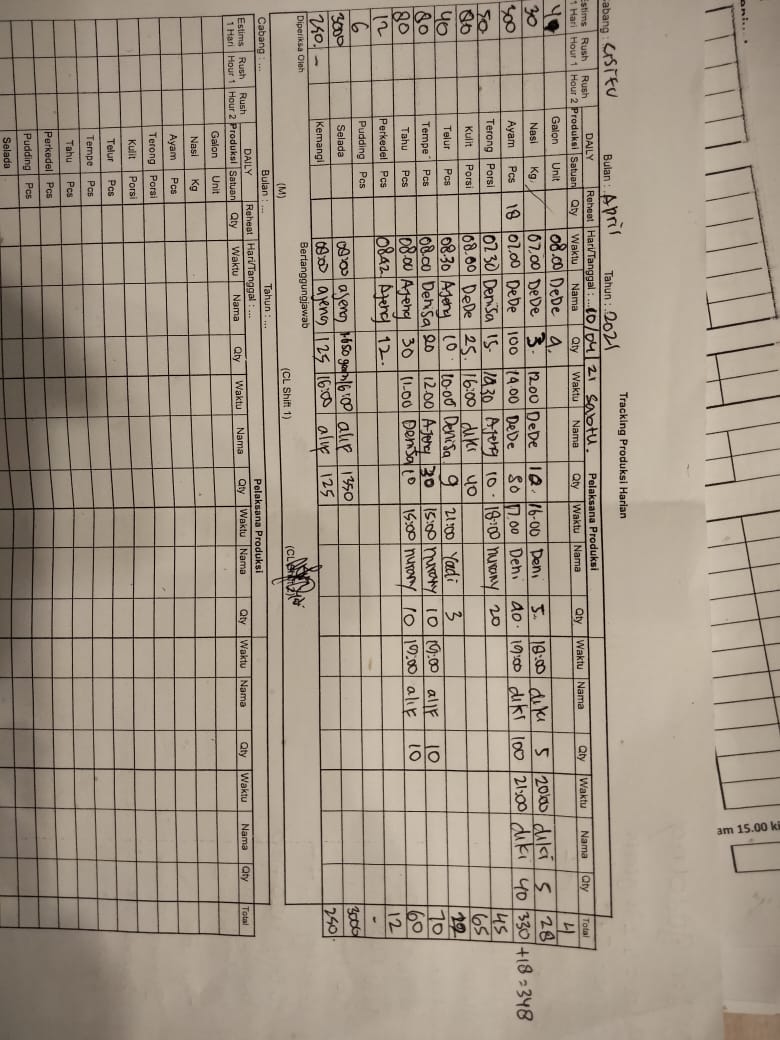 Tracking Produksi Harian
Cabang : CISITU Bulan : April Tahun : 2021 Pelaksana Produksi
Estims 1 Hari Rush Hour 1 Rush Hour 2 DAILY Produksi Satuan Reheat Qty Hari/Tanggal : 10/04/21 Sabtu. Waktu Nama Qty Waktu Nama Qty Waktu Nama Qty Waktu Nama Qty Waktu Nama Qty Total
4 Galon Unit 08.00 DeDe 4. 4
30 Nasi Kg 07.00 DeDe 3. 12.00 DeDe 10. 16.00 Deni 5. 18:00 diki 5 20:00 diki 5 28
300 Ayam Pcs 18 07.00 DeDe 100 14.00 DeDe 50 17.00 Deni 40. 19:00 diki 100 21:00 diki 40 330 +18 = 348
50 Terong Porsi 07.30 Denisa 15. 14.30 Ajeng 10. 18:00 nurany 20 45
80 Kulit Porsi 08.00 DeDe 25. 16:00 diki 40 65
40 Telur Pcs 08.30 Ajeng 10. 10.00 Denisa 9 21:00 Yadi 3 22
80 Tempe Pcs 08.00 Denisa 20 12.00 Ajeng 30 15:00 nurany 10 19:00 alif 10 70
80 Tahu Pcs 08.00 Ajeng 30 11.00 Denisa 10 15:00 nurany 10 19:00 alif 10 60
12 Perkedel Pcs 08.42 Ajeng 12. 12
6 Pudding Pcs -
3000 Selada 08:00 ajeng 1650 gram 16:00 alif 1350 3000
250.- Kemangi 08:00 ajeng 125 16:00 alif 125 250.
Diperiksa Oleh Bertanggungjawab
(M) (CL Shift 1)
Cabang : ... Bulan : ... Tahun : ... Pelaksana Produksi
Estims 1 Hari Rush Hour 1 Rush Hour 2 DAILY Produksi Satuan Reheat Qty Hari/Tanggal : ... Waktu Nama Qty Waktu Nama Qty Waktu Nama Qty Waktu Nama Qty Waktu Nama Qty Total
Galon Unit
Nasi Kg
Ayam Pcs
Terong Porsi
Kulit Porsi
Telur Pcs
Tempe Pcs
Tahu Pcs
Perkedel Pcs
Pudding Pcs
Selada
am 15.00 ki